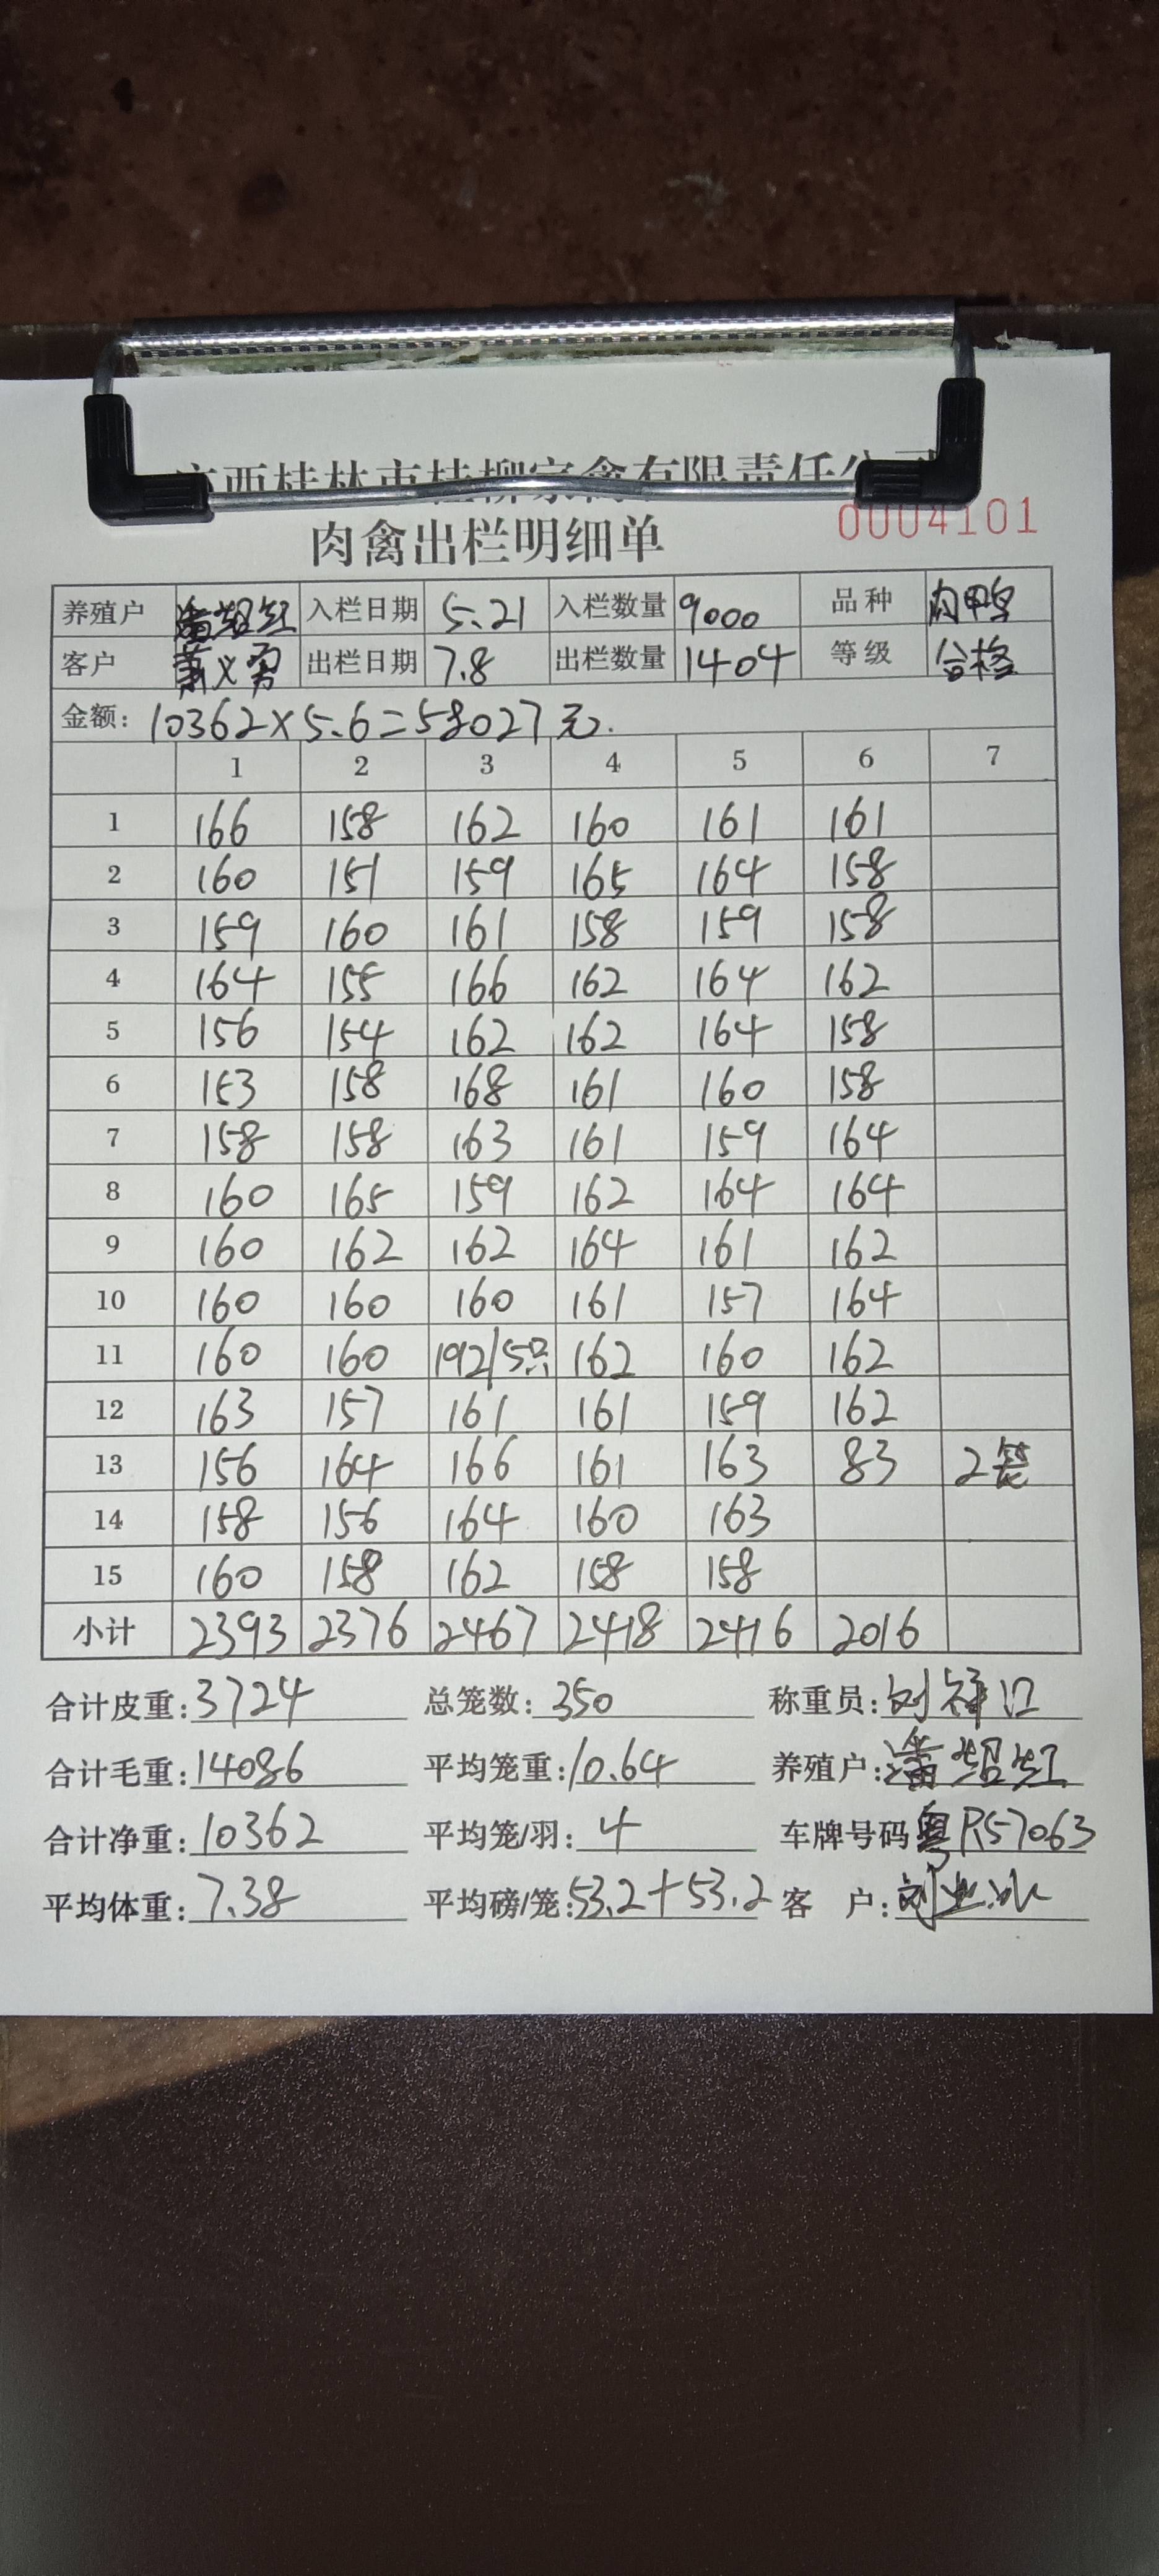 广西桂林市桂柳家禽有限责任公司
肉禽出栏明细单
0004101
养殖户 潘绍红 入栏日期 5.21 入栏数量 9000 品种 肉鸭
客户 萧义勇 出栏日期 7.8 出栏数量 1404 等级 合格
金额: 10362×5.6=58027元.
1 2 3 4 5 6 7
1 166 158 162 160 161 161
2 160 151 159 165 164 158
3 159 160 161 158 159 158
4 164 155 166 162 164 162
5 156 154 162 162 164 158
6 153 158 168 161 160 158
7 158 158 163 161 159 164
8 160 165 159 162 164 164
9 160 162 162 164 161 162
10 160 160 160 161 157 164
11 160 160 192/5只 162 160 162
12 163 157 161 161 159 162
13 156 164 166 161 163 83 2笼
14 158 156 164 160 163
15 160 158 162 158 158
小计 2393 2376 2467 2418 2416 2016
合计皮重: 3724 总笼数: 350 称重员:
合计毛重: 14086 平均笼重: 10.64 养殖户: 潘绍红
合计净重: 10362 平均笼/羽: 4 车牌号码 粤R57063
平均体重: 7.38 平均磅/笼: 53.2+53.2 客 户: